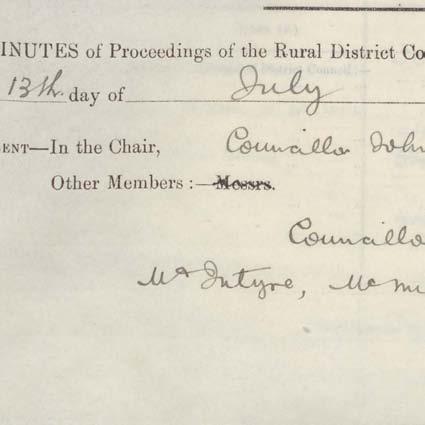 INUTES of Proceedings of the Rural District Co
13th. day of July
ENT—In the Chair, Councillo John
Other Members :—Messrs.
Councillo
McIntyre, McM